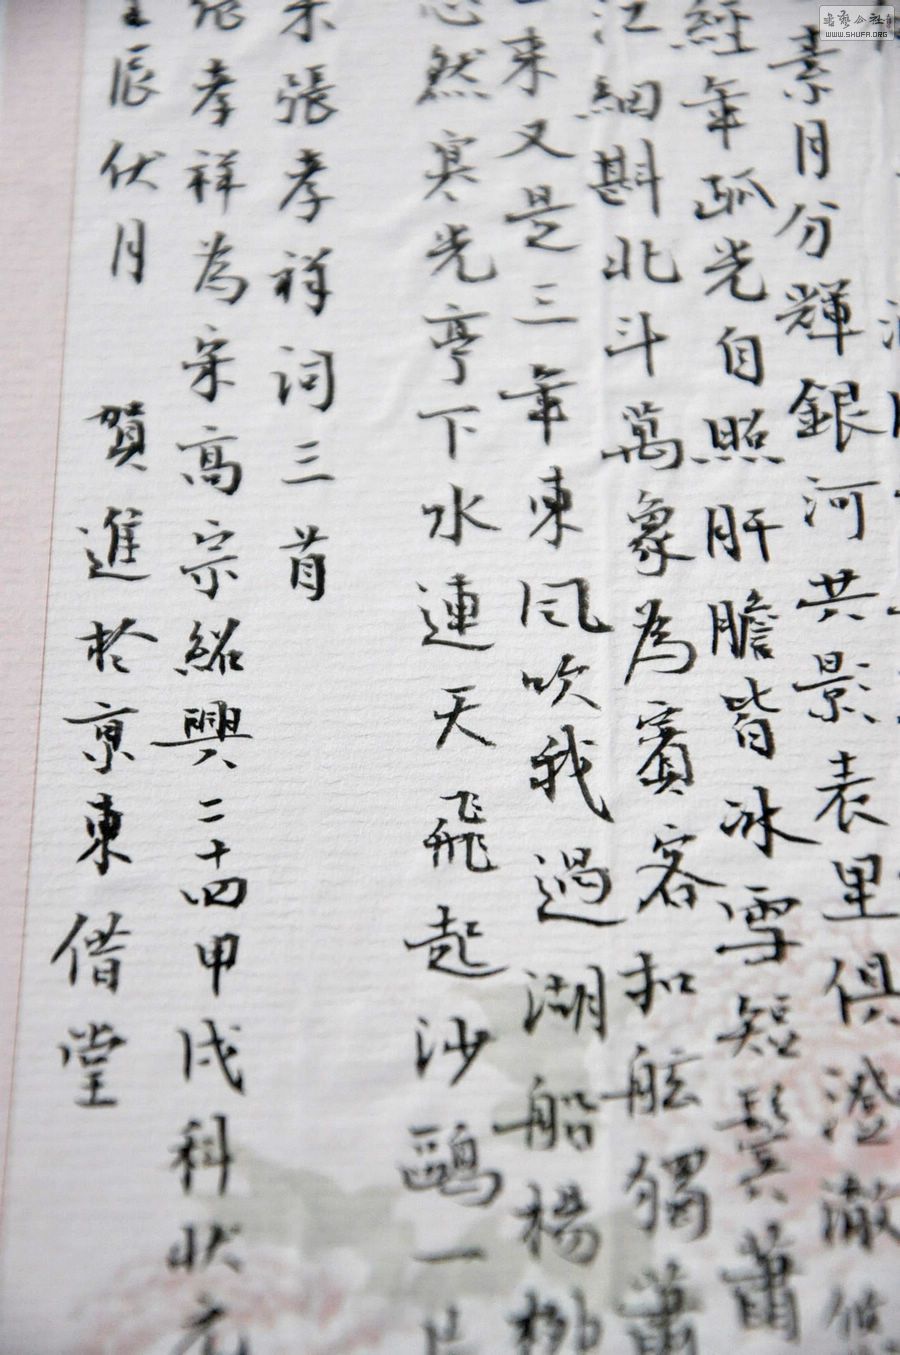 素月分輝銀河共影表里俱澄澈
經年孤光自照肝膽皆冰雪短鬢蕭
江細斟北斗萬象為賓客扣舷獨嘯
來又是三年東风吹我過湖船楊柳
然寒光亭下水連天飛起沙鷗一片
宋張孝祥词三首
張孝祥為宋高宗紹興二十四甲戌科状元
辰伏月 賀進於京東借堂
書藝公社
WWW.SHUFA.ORG